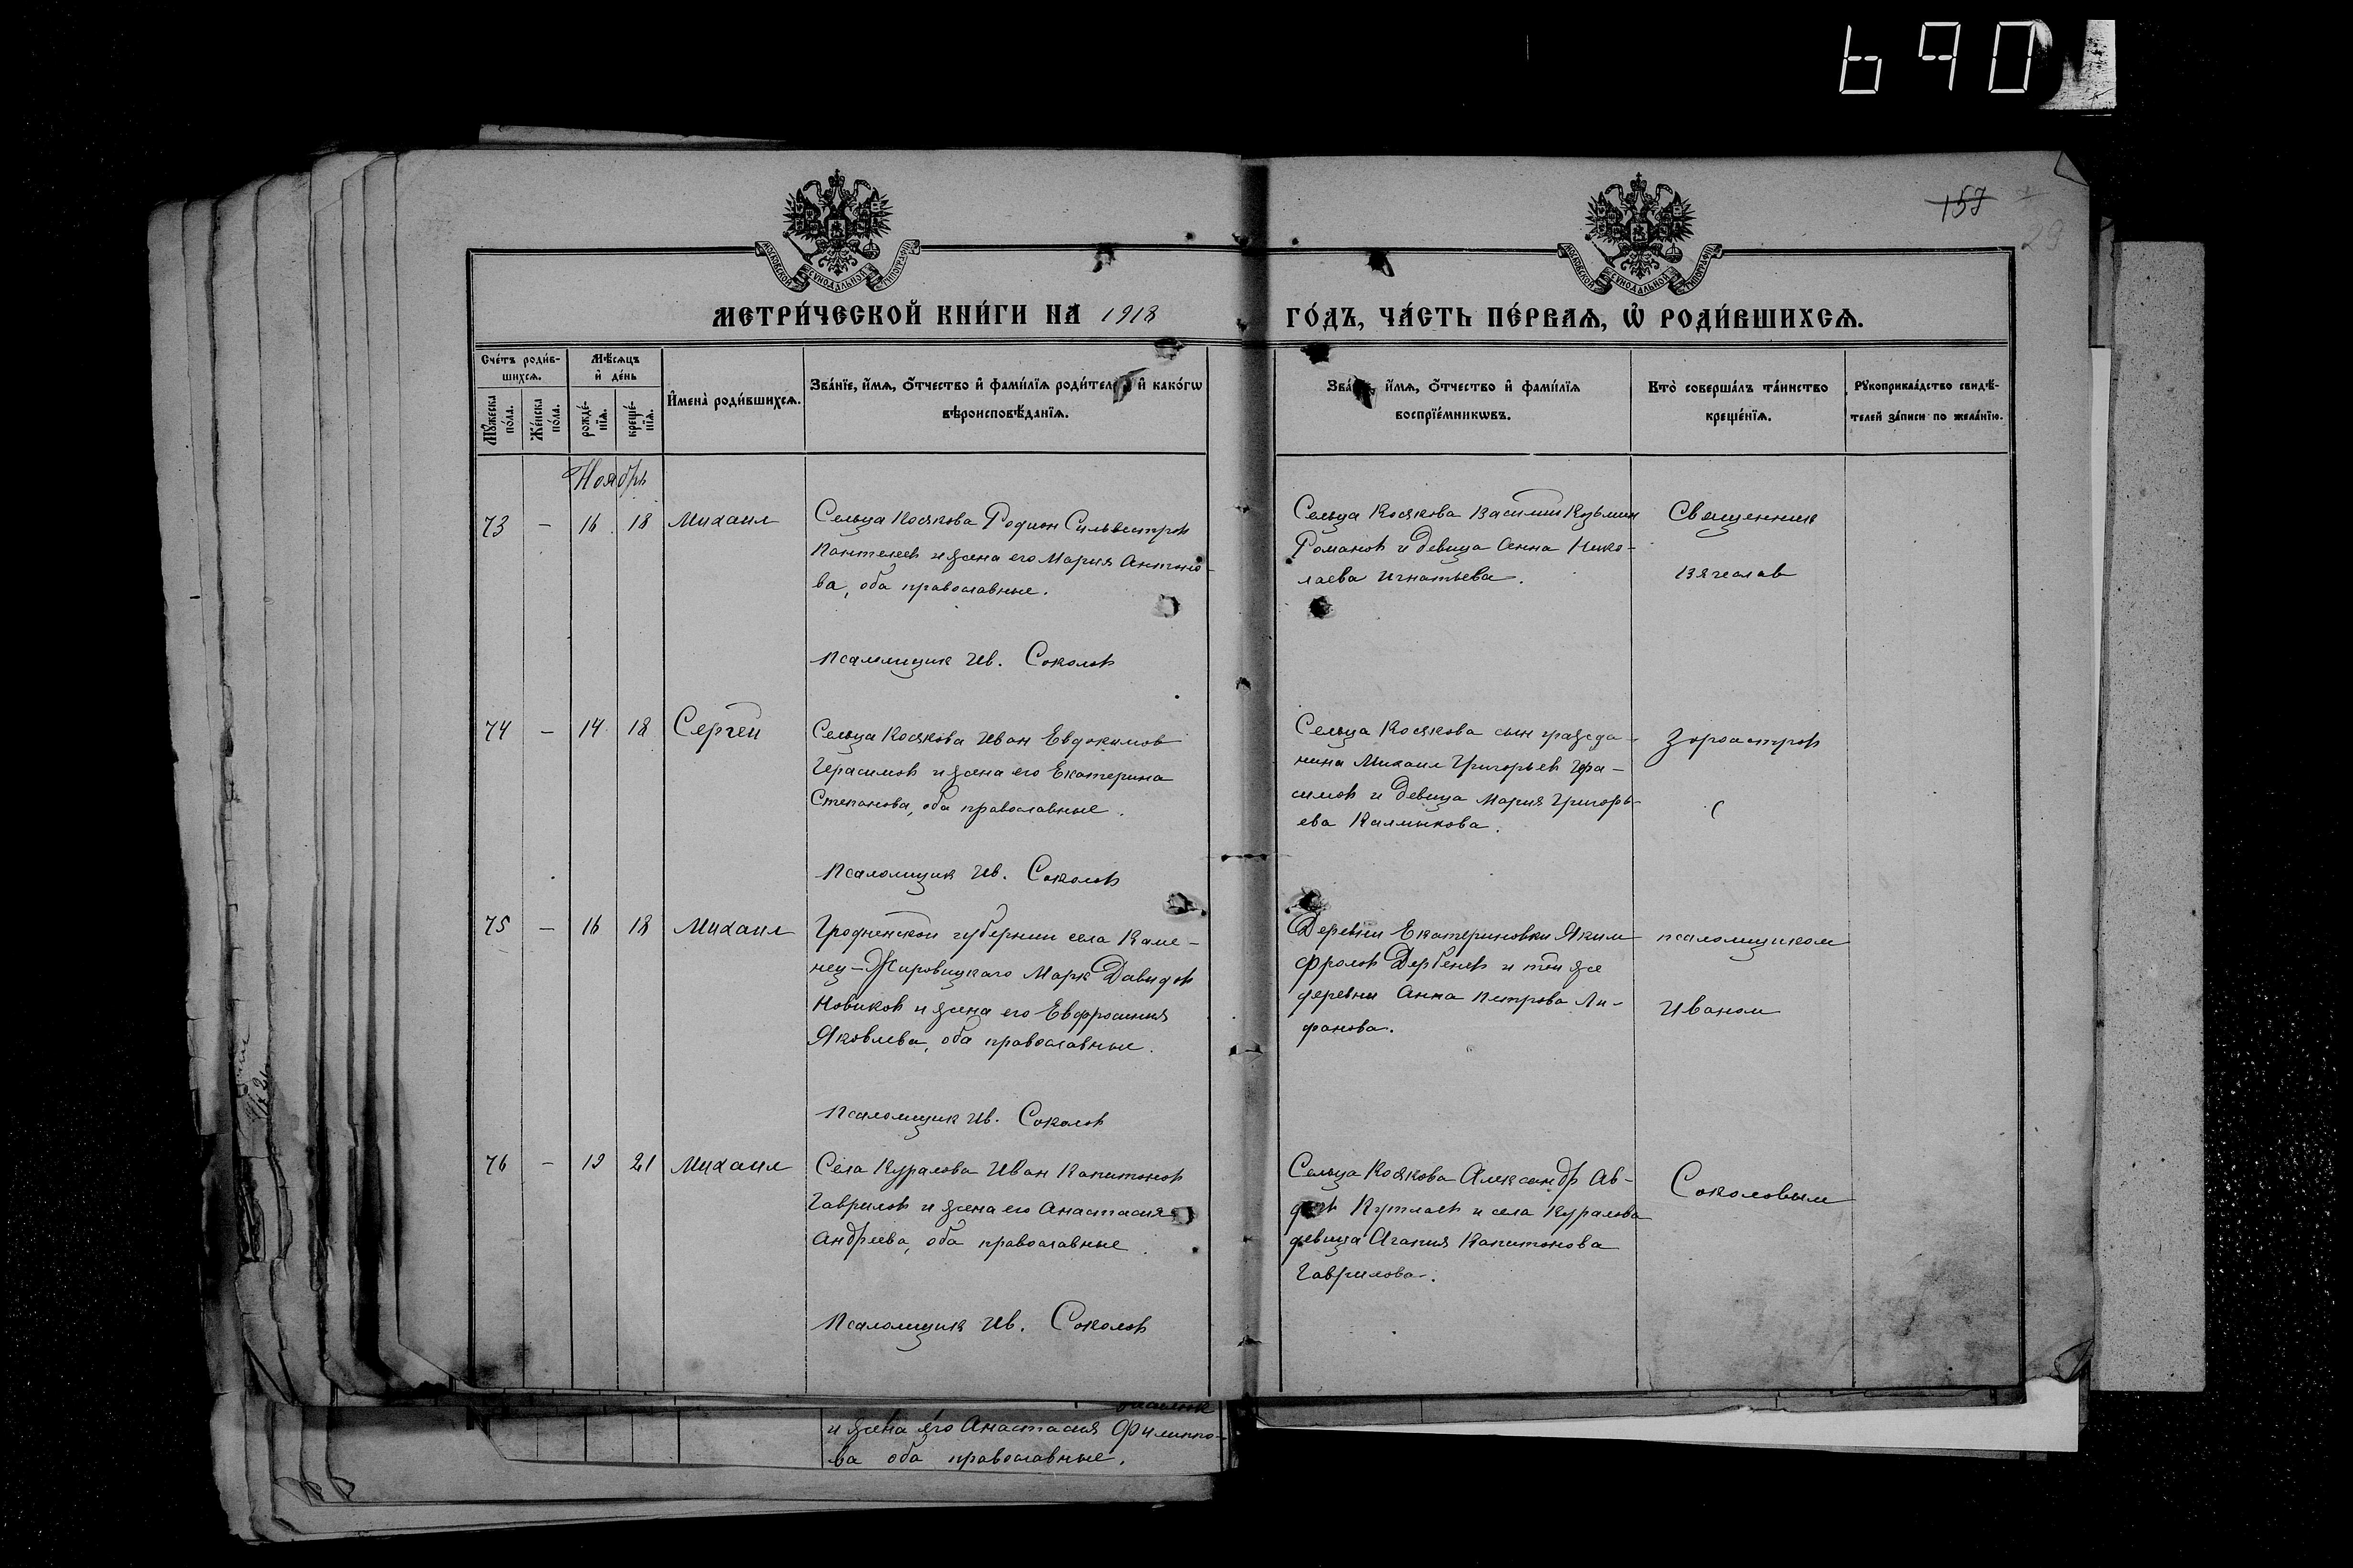 690
157
29
МОСКОВСКОЙ СѴНОДАЛЬНОЙ ТИПОГРАФІИ
МОСКОВСКОЙ СѴНОДАЛЬНОЙ ТИПОГРАФІИ
МЕТРИ́ЧЕСКОЙ КНИ́ГИ НА 1918 ГО́ДЪ, ЧА́СТЬ ПЕ́РВАЯ, Ѡ҆ РОДИ́ВШИХСЯ.
Сче́тъ роди́в-
шихся.
Мѣ́сяцъ
и҆ де́нь
Мꙋ́жеска по́ла.
Же́нска по́ла.
рожде́-
нїя.
креще́-
нїя.
И҆мена̀ роди́вшихся.
Зва́нїе, и҆́мя, ѻ҆́тчество и҆ фами́лїя роди́тел и҆ како́гѡ
вѣроисповѣ́данїя.
Зва́ и҆́мя, ѻ҆́тчество и҆ фами́лїя
воспрїе́мникѡвъ.
Кто̀ соверша́лъ та́инство
креще́нїя.
Рꙋкоприкла́дство свидѣ́-
телей за́писи по жела́нїю.
Ноябрь
73 – 16 18 Михаил
Сельца Косякова Родион Сильвестров
Пантелеев и жена его Мария Антоно-
ва, оба православные.
Псаломщик Ив. Соколов
Сельца Косякова Василий Кузьмин
Романов и девица Анна Нико-
лаева Игнатьева.
Священник
Вячеслав
74 – 14 18 Сергей
Сельца Косякова Иван Евдокимов
Герасимов и жена его Екатерина
Степанова, оба православные.
Псаломщик Ив. Соколов
Сельца Косякова сын гражда-
нина Михаил Григорьев Гера-
симов и девица Мария Григорь-
ева Калмыкова.
Зороастров
с
75 – 16 18 Михаил
Гродненской губернии села Каме-
нец-Жировицкаго Марк Давидов
Новиков и жена его Евфросиния
Яковлева, оба православные.
Псаломщик Ив. Соколов
Деревни Екатериновки Яким
Фролов Дербенев и той же
деревни Анна Петрова Ли-
фанова.
псаломщиком
Иваном
76 – 19 21 Михаил
Села Куралова Иван Капитонов
Гаврилов и жена его Анастасия
Андреева, оба православные.
Псаломщик Ив. Соколов
Сельца Косякова Александр Ав-
Кутлаев и села Куралова
девица Агапия Капитонова
Гаврилова.
Соколовым
и жена его Анастасия Филиппо-
ва оба православные.